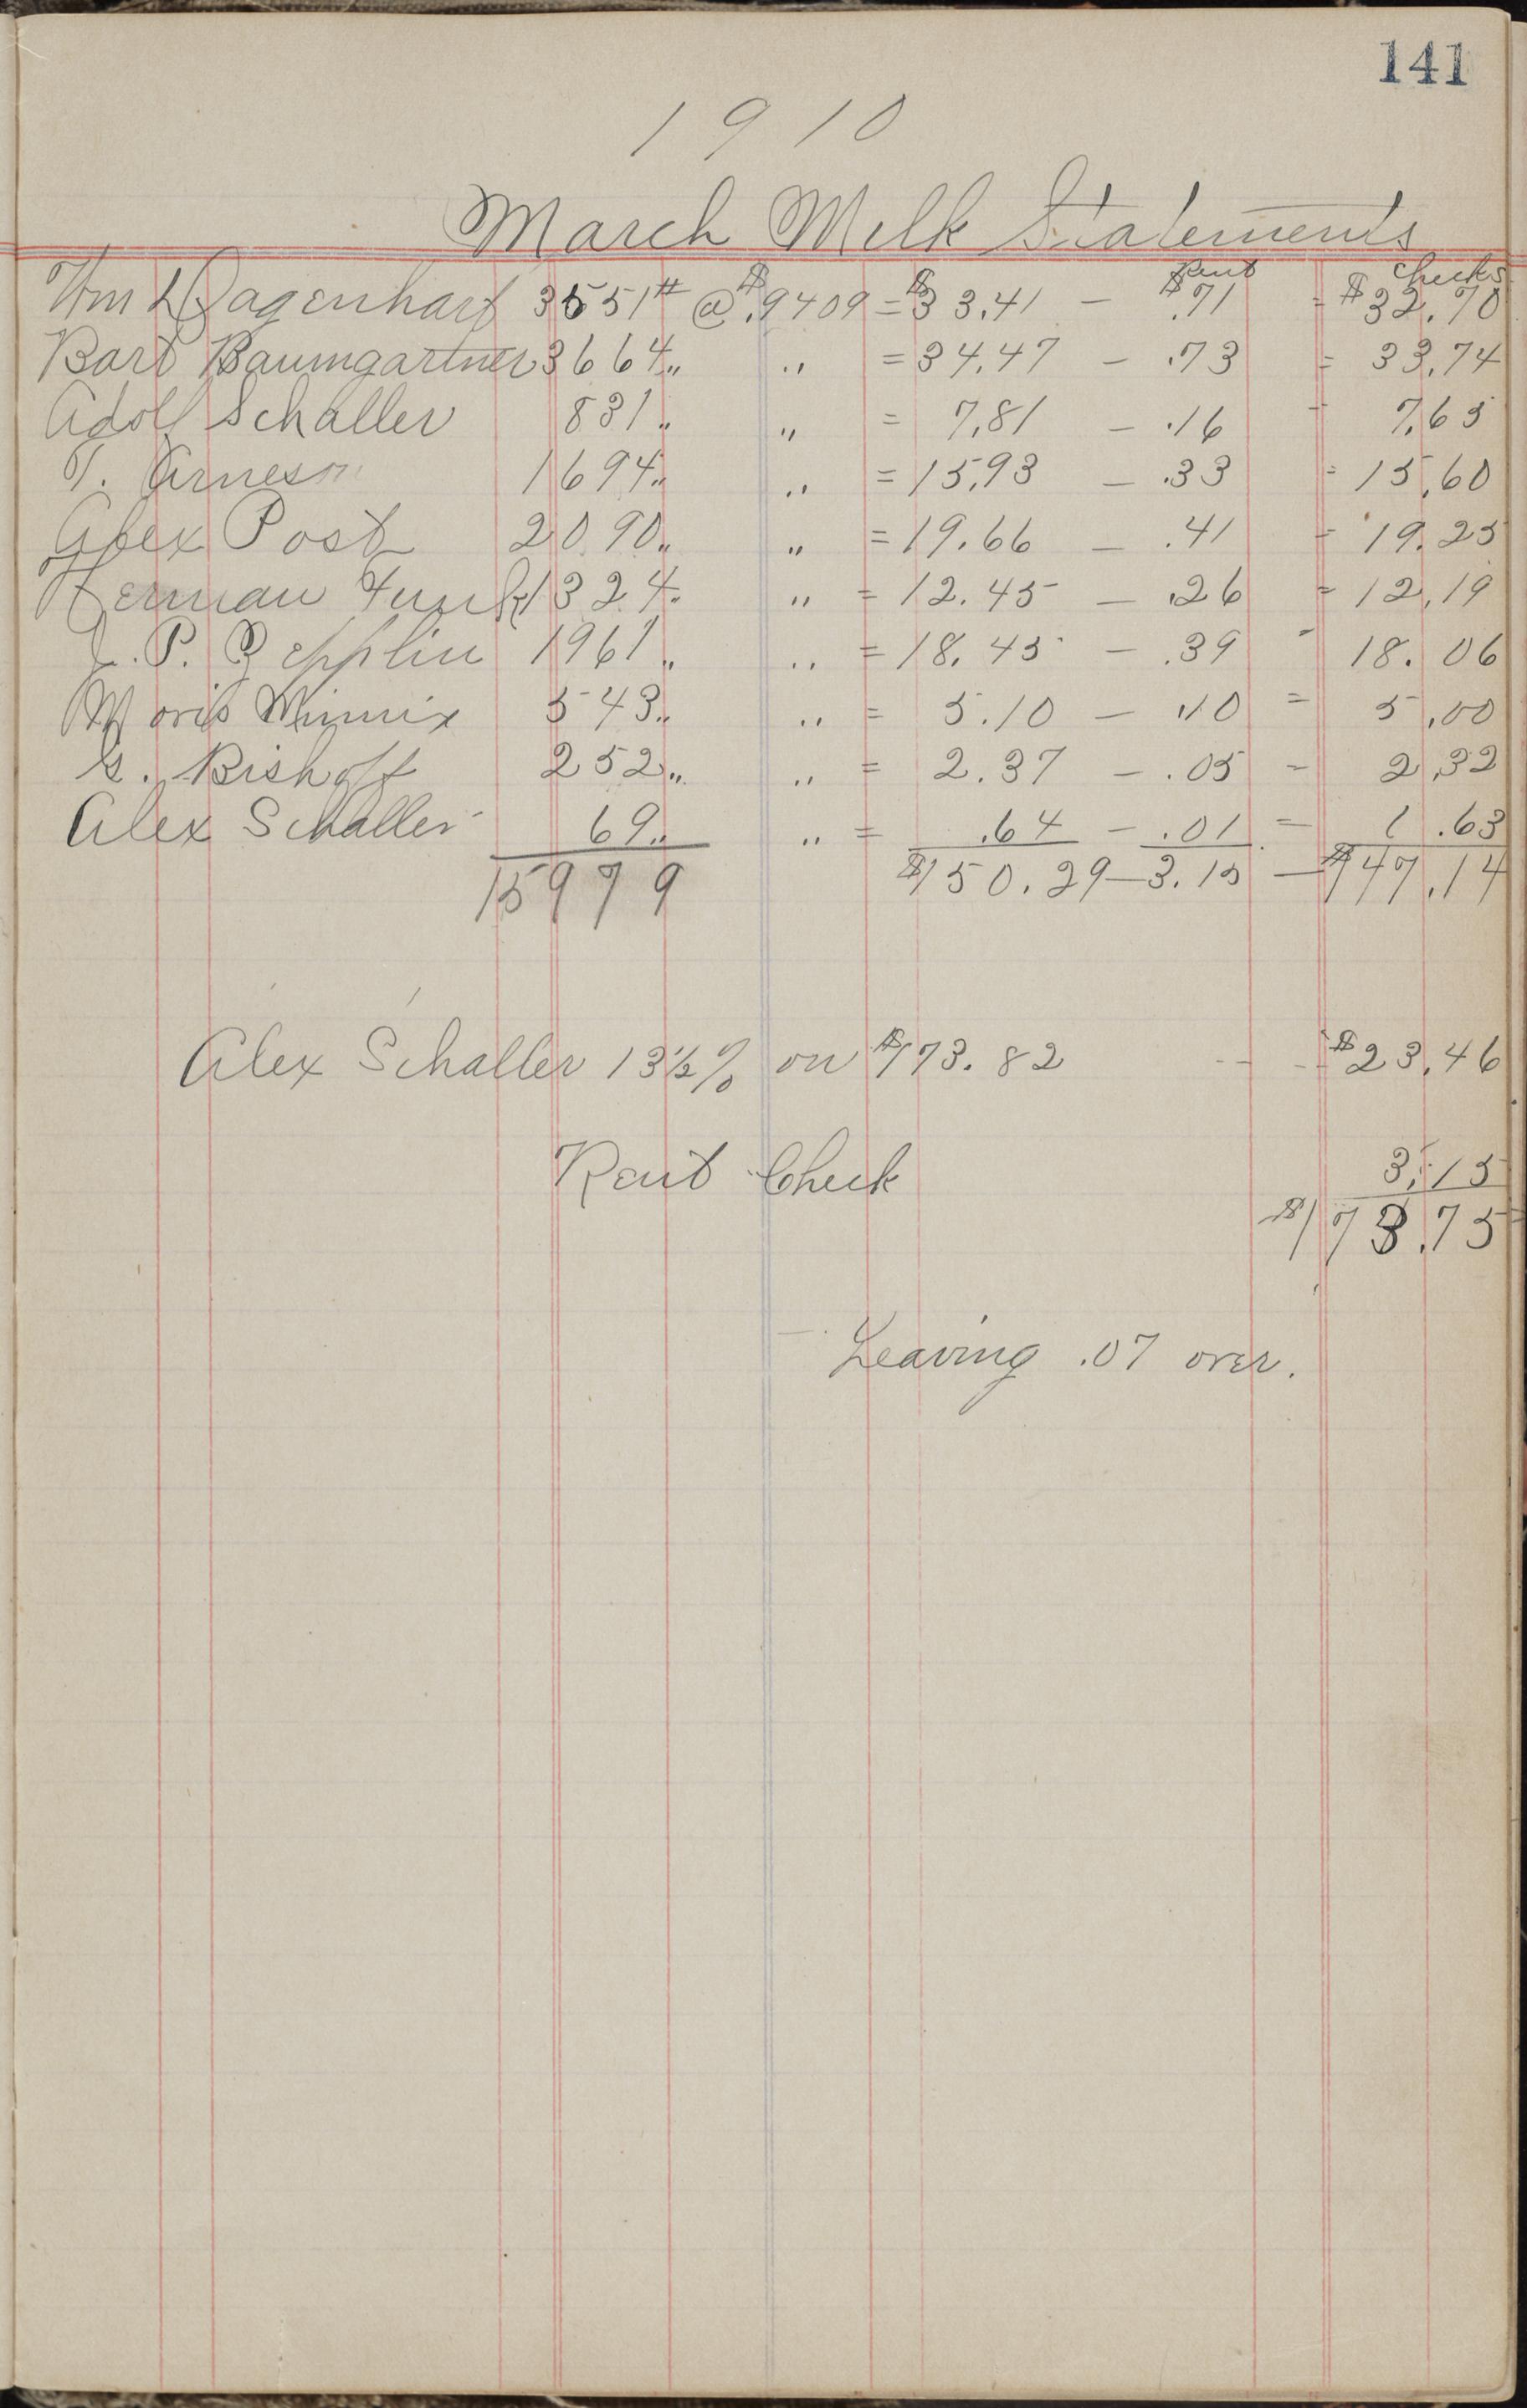 141
1910
March Milk Statements
Rent Checks
Wm Dagenhart 3551# @ $.9409 = $33.41 — $.71 = $32.70
Bart Baumgartner 3664 " " = 34.47 — .73 = 33.74
Adolf Schaller 831 " " = 7.81 — .16 = 7.65
T. Arneson 1694 " " = 15.93 — .33 = 15.60
Alex Post 2090 " " = 19.66 — .41 = 19.25
Herman Funk 1324 " " = 12.45 — .26 = 12.19
J. P. Zepplin 1961 " " = 18.45 — .39 = 18.06
Moris Minnix 543 " " = 5.10 — .10 = 5.00
G. Bishoff 252 " " = 2.37 — .05 = 2.32
Alex Schaller 69 " " = .64 — .01 = .63
15979 $150.29 — 3.15 — $147.14
Alex Schaller 13½% on $173.82 -- -- $23.46
Rent Check 3.15
$173.75
Leaving .07 over.